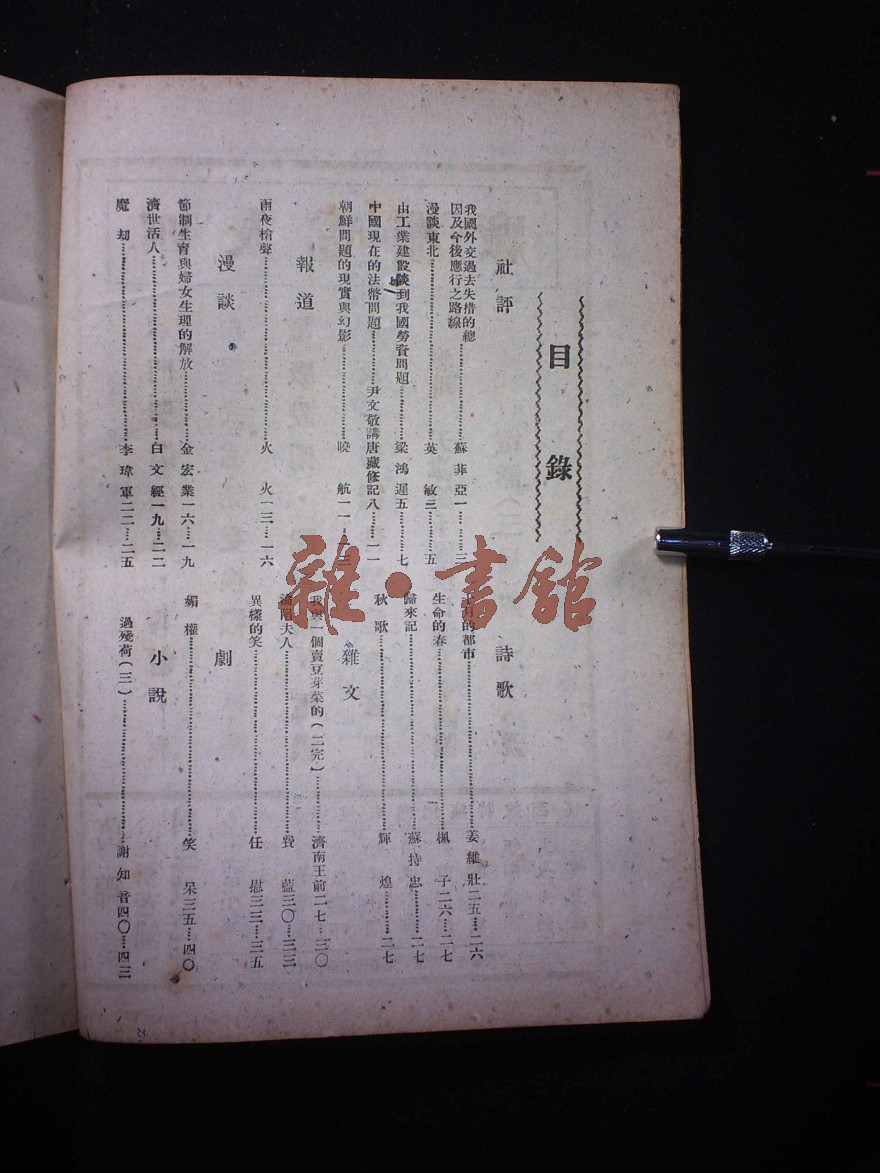 目錄
社評
我國外交過去失措的總
因及今後應行之路線……蘇菲亞一……三
漫談東北……英敏三……五
由工業建設談到我國勞資問題……梁鴻遲五……七
中國現在的法幣問題……尹文敬講唐藏修記八……一一
朝鮮問題的現實與幻影……曉航一一……一三
報道
雨夜槍聲……火火一三……一六
漫談
節制生育與婦女生理的解放……金宏業一六……一九
濟世活人……白文經一九……二二
魔劫……李瑋軍二二……二五
詩歌
月的都市……姜維壯二五……二六
生命的春……楓子二六……二七
歸來記……蘇持忠……二七
秋歌……輝煌……二七
雜文
我與一個賣豆芽菜的(二完)……濟南王前二七……三〇
淪陷夫人……費藍三〇……三三
異樣的笑……任慰三三……三五
劇
媚權……笑呆三五……四〇
小說
過殘荷(三)……謝知音四〇……四三
雜·書館